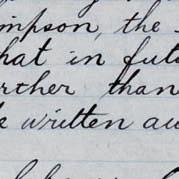 mpson, the
hat in fut
rther than
written au